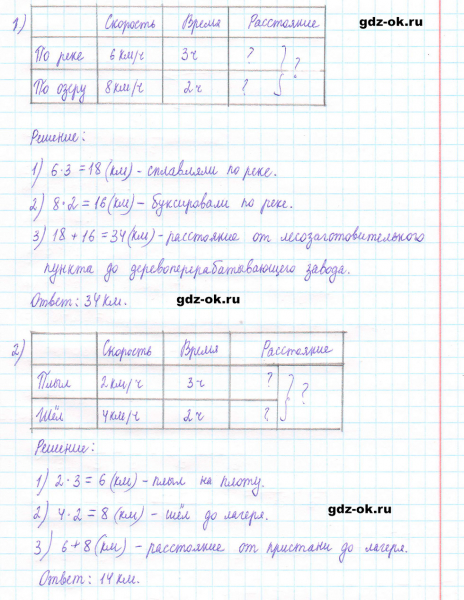 gdz-ok.ru
1) Скорость Время Расстояние
По реке 6 км/ч 3ч ? } ?
По озеру 8 км/ч 2ч ?
Решение:
1) 6·3 = 18 (км) - сплавляли по реке.
2) 8·2 = 16 (км) - буксировали по реке.
3) 18 + 16 = 34 (км) - расстояние от лесозаготовительного
пункта до деревоперерабатывающего завода.
Ответ: 34 км.
gdz-ok.ru
2) Скорость Время Расстояние
Плыл 2 км/ч 3ч ? } ?
Шёл 4 км/ч 2ч ?
Решение:
1) 2·3 = 6 (км) - плыл на плоту.
gdz-ok.ru
2) 4·2 = 8 (км) - шёл до лагеря.
3) 6+8 (км) - расстояние от пристани до лагеря.
Ответ: 14 км.